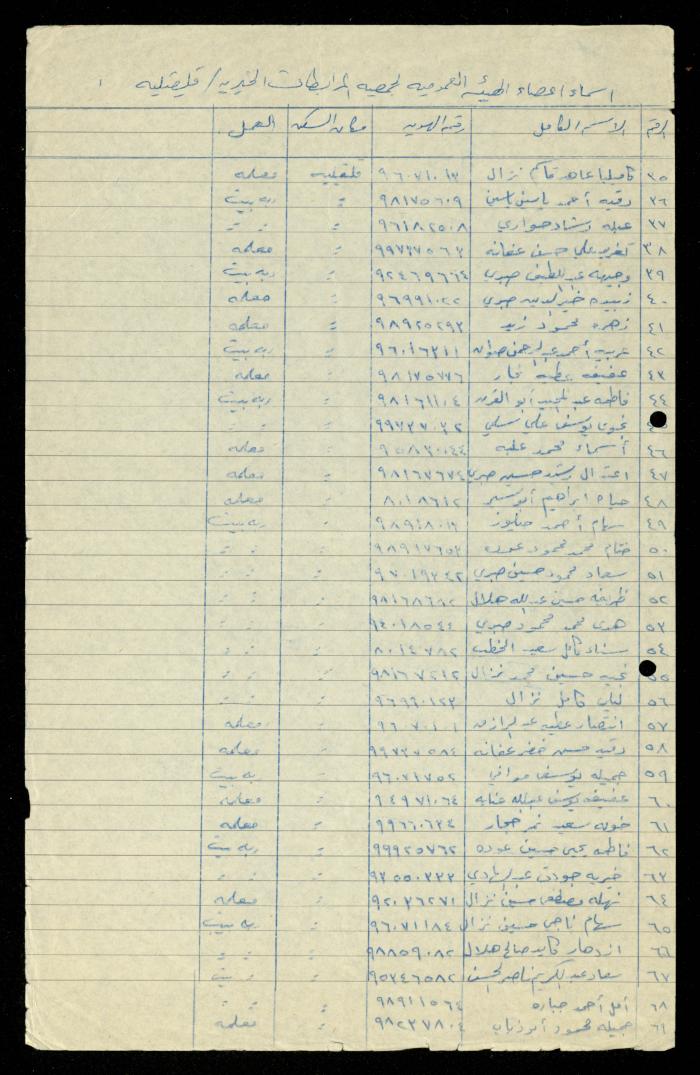 اسماء اعضاء الهيئه العموميه لجمعيه المرابطات الخيريه / قلقيليه
الرقم الاسم الكامل رقم الهويه مكان السكن العمل
٣٥ كاميليا عاهد قاسم نزال ٩٦٠٧١٠١٣ قلقيليه معلمه
٣٦ رقيه أحمد ياسين ياسين ٩٨١٧٥٦٠٩ = ربه بيت
٣٧ عبله رشاد حواري ٩٦١٨٢٥٠٨ = = =
٣٨ تغريد علي حسين عفانه = معلمه
٣٩ وجيهه عبد اللطيف صبري ٩٢٤٦٩٦٦٤ = ربه بيت
٤٠ زبيده خير الدين صبري ٩٦٩٩١٠٢٢ = معلمه
٤١ زهره محمود زيد ٩٨٩٢٥٢٩٣ = معلمه
٤٢ عربيه أحمد عبد الرحمن ٩٦٠١٦٣١١ = ربه بيت
٤٣ عفيفه عطيه ٩٨١٧٥٧٧٦ = معلمه
٤٤ فاطمه عبد المجيد أبو ٩٨١٦١١٠٤ = ربه بيت
نجوى يوسف علي = = =
٤٦ أسماء محمد علبه ٩٥٨٣٠٠٤٤ = معلمه
٤٧ اعتدال رشيد حسين صبري ٩٨١٦٧٦٧٤ = معلمه
٤٨ حياه ابراهيم أبو ٨٠١٨٦١٢ = معلمه
٤٩ سهام أحمد = ربه بيت
٥٠ ختام محمد محمود عوده ٩٨٩١٧٦٥٢ = = =
٥١ سعاد محمود حسين صبري ٩٧٠١٩٢٤٢ = = =
٥٢ ظريفه حسين عبد الله هلال ٩٨١٦٨٦٨٢ = = =
٥٣ هدى محمد محمود صبري ٩٤٠١٨٥٤٤ = = =
٥٤ سناء كامل سعيد الخطيب ٨٠١٤٧٨٢ = = =
٥٥ حسين محمد نزال ٩٨١٦٧٢١٢ = = =
٥٦ كامل نزال ٩٦٩٩٠١٢٣ = = =
٥٧ انتصار عطيه عبد الرازق ٩٦٠٧٠١٠١ = معلمه
٥٨ رقيه حسن خضر عفانه ٩٩٧٣٧٥٨٤ = معلمه
٥٩ جميله يوسف موافي ٩٦٠٧١٧٥٢ = ربه بيت
٦٠ عفيفه يوسف عبد الله عنايه ٩٤٩٧١٠٦٤ = معلمه
٦١ خوله سعيد نمر حجار ٩٩٦٦٠٦٢٤ = معلمه
٦٢ فاطمه يحيى حسين عوده ٩٩٩٢٥٧٦٢ = ربه بيت
٦٣ خيريه جودت عبد الهادي ٩٣٥٥٠٣٣٣ = = =
٦٤ نهله مصطفى حسين نزال ٩٢٠٣٦٢٧١ = معلمه
٦٥ سهام ناجي حسين نزال ٩٦٠٧١١٨٤ = ربه بيت
٦٦ ازدهار كايد صالح هلال ٩٨٨٥٩٠٨٢ = = =
٦٧ سعاد عبد الكريم ناصر ٩٥٢٤٦٥٨٢ = ربه بيت
٦٨ أمل أحمد جباره ٩٨٩١١٥٦٤ = = =
٦٩ جميله محمود أبو ذياب ٩٨٢٣٧٨٠٤ = معلمه